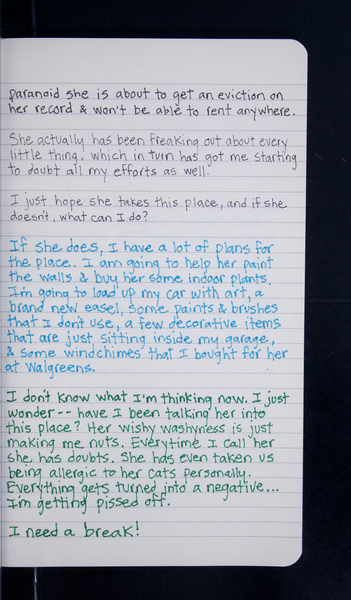 paranoid she is about to get an eviction on
her record & won't be able to rent anywhere.
She actually has been freaking out about every
little thing, which in turn has got me starting
to doubt all my efforts as well.
I just hope she takes this place, and if she
doesn't, what can I do?
If she does, I have a lot of plans for
the place. I am going to help her paint
the walls & buy her some indoor plants.
I'm going to load up my car with art, a
brand new easel, some paints & brushes
that I don't use, a few decorative items
that are just sitting inside my garage,
& some windchimes that I bought for her
at Walgreens.
I don't know what I'm thinking now. I just
wonder -- have I been talking her into
this place? Her wishy washyness is just
making me nuts. Everytime I call her
she has doubts. She has even taken us
being allergic to her cats personally.
Everything gets turned into a negative...
I'm getting pissed off.
I need a break!